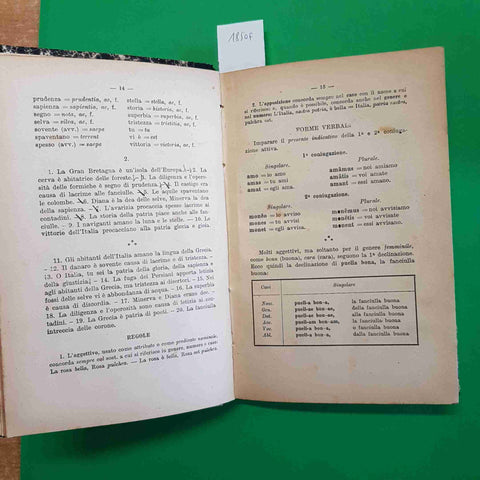 18504
— 14 —
prudenza = prudentia, ae, f.
sapienza = sapientia, ae, f.
segno = nota, ae, f.
selva = silva, ae, f.
sovente (avv.) = saepe
spaventano = terrent
spesso (avv.) = saepe
stella = stella, ae, f.
storia = historia, ae, f.
superbia = superbia, ae, f.
tristezza = tristitia, ae, f.
tu = tu
vi è = est
vittoria = victoria, ae, f.
2.
1. La Gran Bretagna è un'isola dell'Europa. — 2. La
cerva è abitatrice delle foreste. — 3. La diligenza e l'operosità
delle formiche è segno di prudenza. — 4. Il castigo era
causa di lacrime alle fanciulle. — 5. Le aquile spaventano
le colombe. — 6. Diana è la dea delle selve, Minerva la dea
della sapienza. — 7. L'avarizia procaccia spesso lacrime ai
contadini. — 8. La storia della patria piace anche alle fanciulle.
— 9. I naviganti amano la luna e le stelle. — 10. Le
vittorie dell'Italia procacciano alla patria gloria e gioia.
11. Gli abitanti dell'Italia amano la lingua della Grecia.
— 12. Il danaro è sovente causa di lacrime e di tristezza. —
13. O Italia, tu sei la patria della gloria, della sapienza e
della giustizia! — 14. La fuga dei Persiani apporta letizia
agli abitanti della Grecia, ma tristezza ai disertori. — 15. Nei
fossi delle selve vi è abbondanza di acqua. — 16. La superbia
è causa di discordia. — 17. Minerva e Diana erano dee. —
18. La diligenza e l'operosità sono causa di letizia ai contadini.
— 19. La Grecia è patria di poeti. — 20. La fanciulla
intreccia delle corone.
REGOLE
1. L'aggettivo, usato come attributo o come predicato nominale,
concorda sempre col sost. a cui si riferisce in genere, numero e caso:
La rosa bella, Rosa pulchra. — La rosa è bella, Rosa est pulchra.
— 15 —
2. L'apposizione concorda sempre nel caso con il nome a cui
si riferisce e, quando è possibile, concorda anche nel genere e
nel numero: L'Italia, nostra patria, è bella = Italia, patria nostra,
pulchra est.
FORME VERBALI
Imparare il presente indicativo della 1ª e 2ª coniugazione
attiva.
1ª coniugazione.
Singolare.
amo = io amo
amas = tu ami
amat = egli ama.
Plurale.
amāmus = noi amiamo
amātis = voi amate
amant = essi amano.
2ª coniugazione.
Singolare.
monĕo = io avviso
mones = tu avvisi
monet = egli avvisa.
Plurale.
monēmus = noi avvisiamo
monētis = voi avvisate
monent = essi avvisano.
Molti aggettivi, ma soltanto per il genere femminile,
come bona (buona), cara (cara), seguono la 1ª declinazione.
Ecco quindi la declinazione di puella bona, la fanciulla
buona:
Caso Singolare
Nom. puell-a bon-a, la fanciulla buona
Gen. puell-ae bon-ae, della fanciulla buona
Dat. puell-ae bon-ae, alla fanciulla buona
Acc. puell-am bon-am, la fanciulla buona
Voc. puell-a bon-a, o fanciulla buona
Abl. puell-a bon-a, dalla fanciulla buona